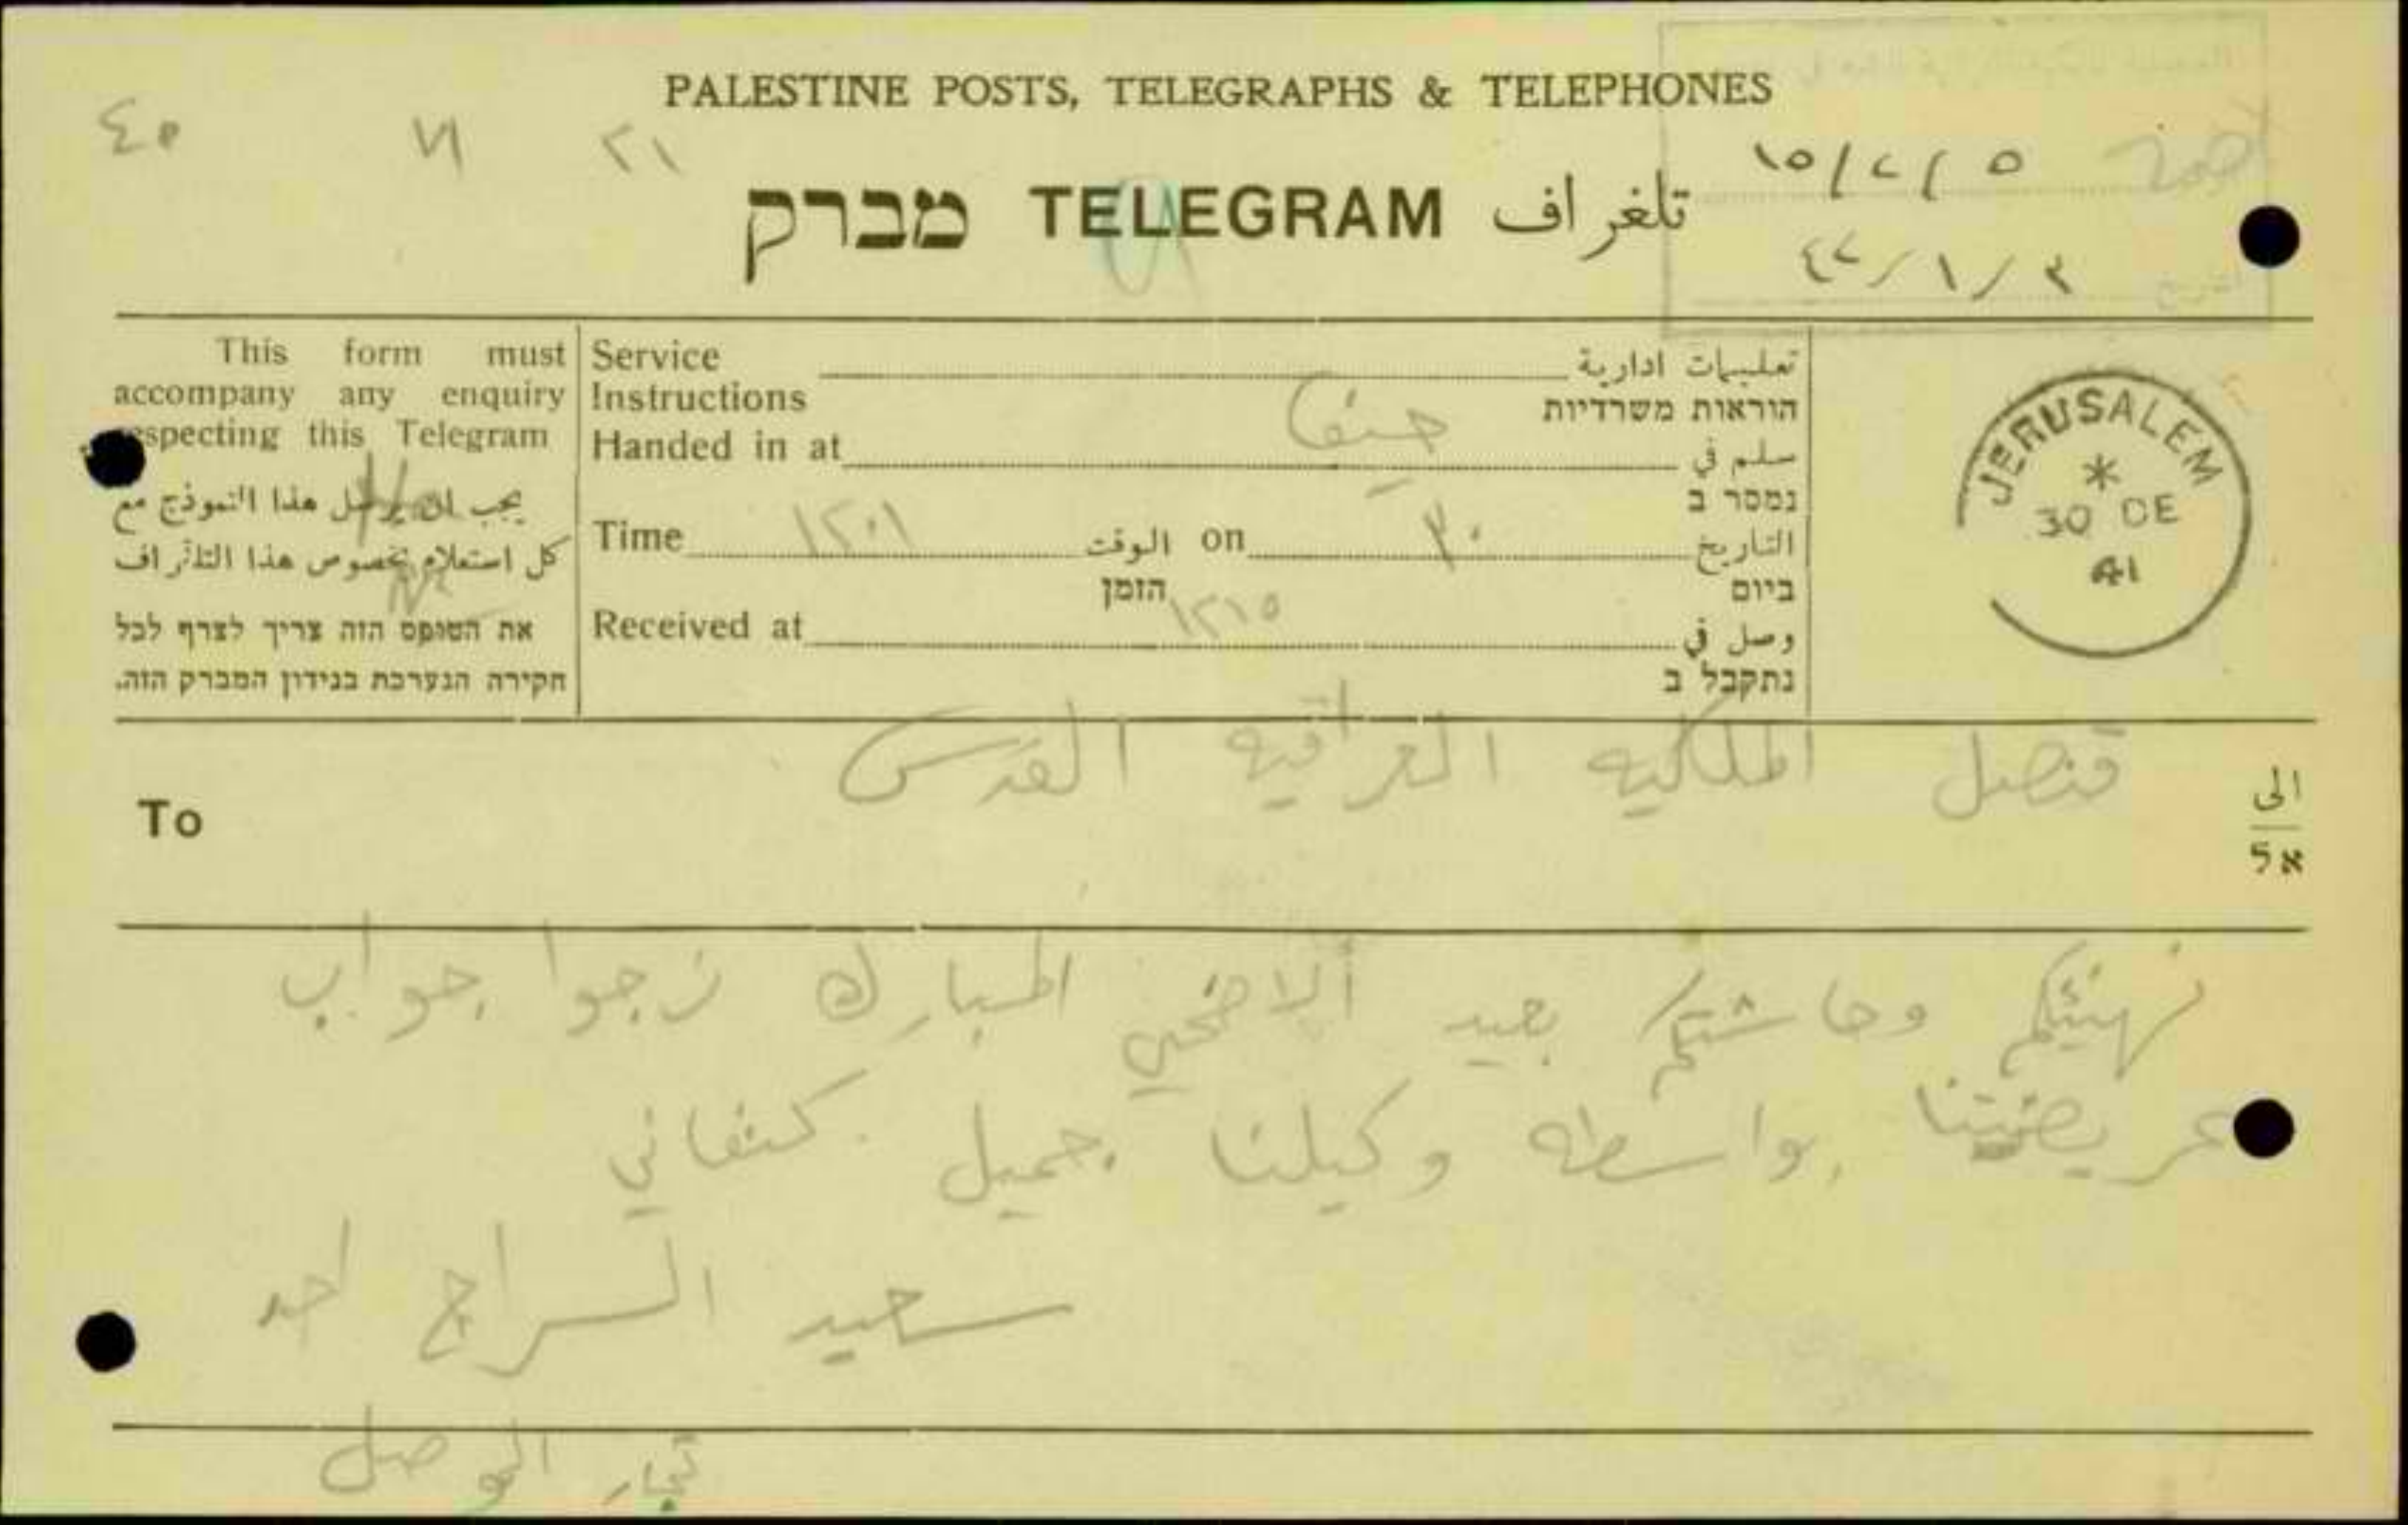 PALESTINE POSTS, TELEGRAPHS & TELEPHONES
٤٥ ٧١ ٢١
מברק TELEGRAM تلغراف
١٥/٢/٥
٤٢/١/٣
This form must
accompany any enquiry
especting this Telegram
يجب ان يرسل هذا النموذج مع
كل استعلام بخصوص هذا التلغراف
את הטופס הזה צריך לצרף לכל
חקירה הנערכת בנידון המברק הזה.
Service تعليمات ادارية
Instructions הוראות משרדיות
Handed in at حيفا سلم في
נמסר ב
Time ١٢٠١ الوقت on ٣٠ التاريخ
הזמן ביום
Received at ١٢١٥ وصل في
נתקבל ב
JERUSALEM
*
30 DE
41
To قنصل الملكيه العراقيه القدس الى
אל
نهنئكم وحاشتكم بعيد ألاضحي المبارك نرجوا جواب
عريضتنا بواسطه وكيلنا جميل كنفاني
سعيد السراج احد
تجار الموصل